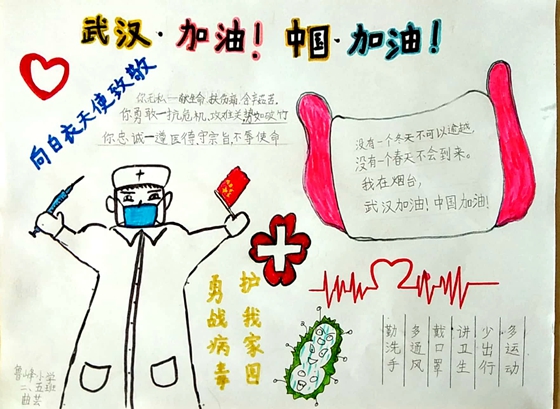 武汉·加油！中国·加油！
向白衣天使致敬
你无私一献生命,扶伤病,含辛茹苦。
你勇敢一抗危机,攻难关,势如破竹
你忠诚一遵医德守宗旨,不辱使命
没有一个冬天不可以逾越,
没有一个春天不会到来。
我在烟台,
武汉加油!中国加油!
护我家国
勇战病毒
勤洗手
多通风
戴口罩
讲卫生
少出行
多运动
小学
二、五班